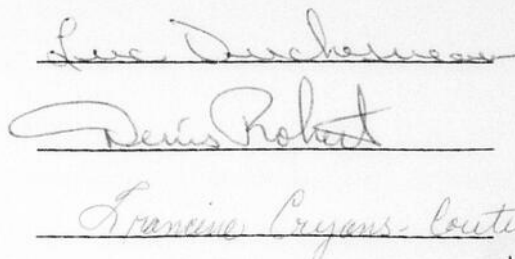 Luc Duchesneau
Denis Robert
Francine Cryans-Coute